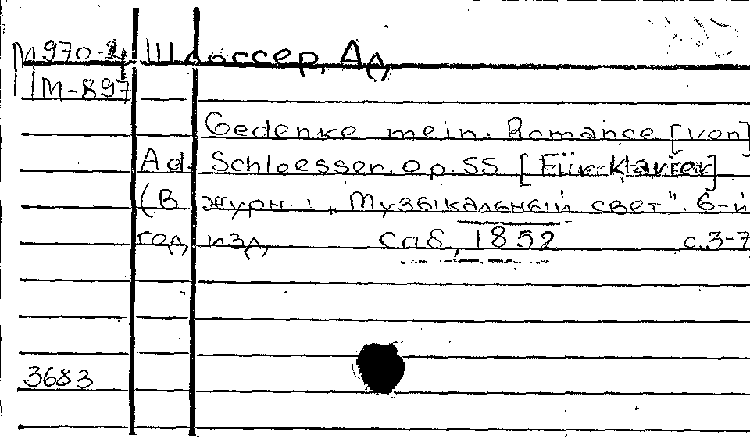 М970-4 Шлоссер, Ад.
М-897
Gedenke mein. Romance [von]
Ad. Schloesser. Op. 55 [Für Klavier]
(В журн.: „Музыкальный свет". 6-й
год изд. Спб, 1852 с. 3-7
3683